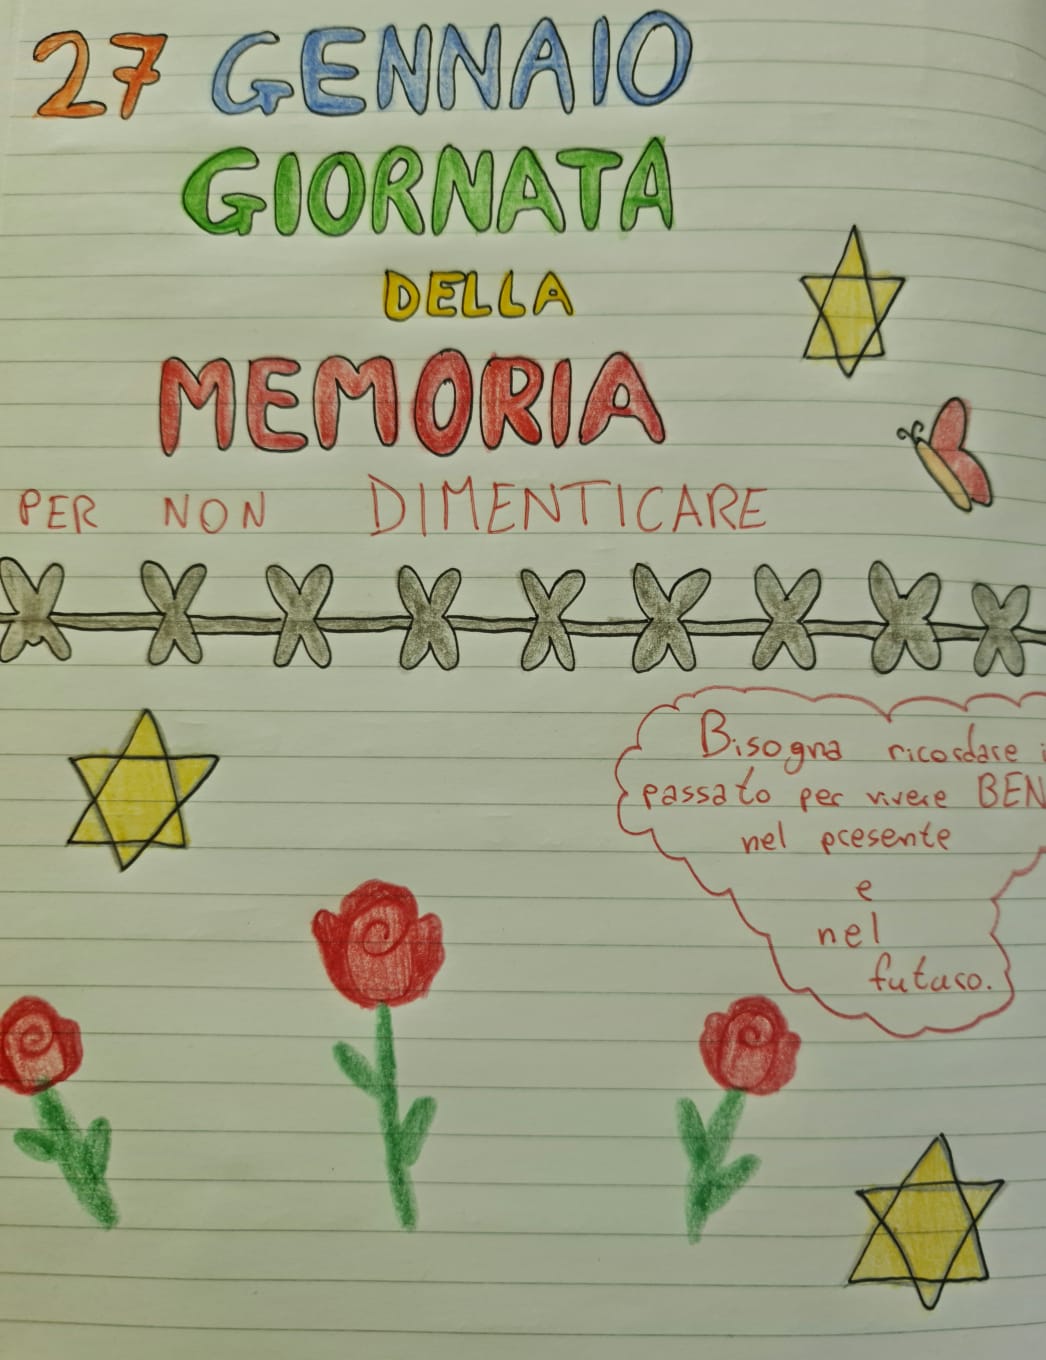 27 GENNAIO
GIORNATA
DELLA
MEMORIA
PER NON DIMENTICARE
Bisogna ricordare i
passato per vivere BEN
nel presente
e
nel
futuro.